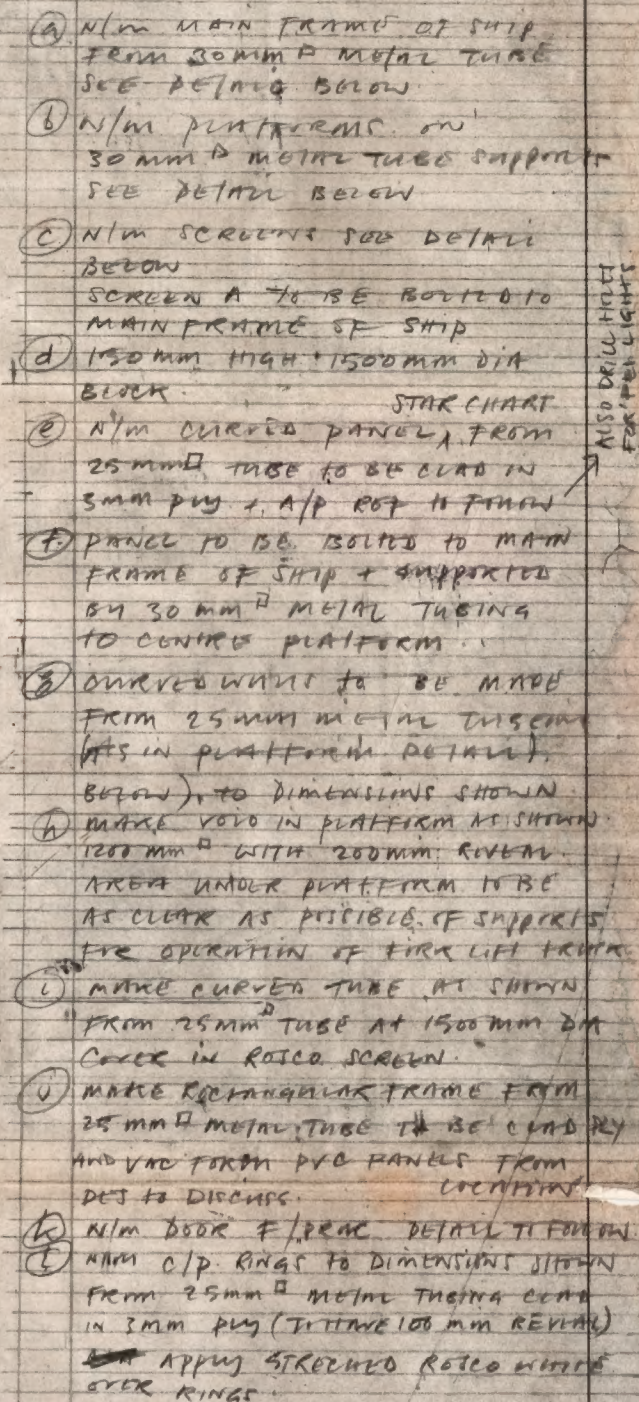 (a) N/M MAIN FRAME OF SHIP
FROM 30MM □ METAL TUBE
SEE DETAIL BELOW
(b) N/M PLATFORMS ON
30MM □ METAL TUBE SUPPORTS
SEE DETAIL BELOW
(c) N/M SCREENS SEE DETAIL
BELOW
SCREEN A TO BE BOLTED TO
MAIN FRAME OF SHIP
(d) 150MM HIGH 1500MM DIA
BLOCK.
STAR CHART
(e) N/M CURVED PANEL, ^ FROM
25MM □ TUBE TO BE CLAD IN
3MM PLY + A/P REF TO FOLLOW
ALSO DRILL HOLES
FOR LIGHTS
(f) PANEL TO BE BOLTED TO MAIN
FRAME OF SHIP + SUPPORTED
BY 30MM □ METAL TUBING
TO CENTRE PLATFORM
(g) CURVED WALLS TO BE MADE
FROM 25MM METAL TUBEING
(AS IN PLATFORM DETAIL)
BELOW), TO DIMENSIONS SHOWN
(h) MAKE VOID IN PLATFORM AS SHOWN
1200MM □ WITH 200MM REVEAL.
AREA UNDER PLATFORM TO BE
AS CLEAR AS POSSIBLE OF SUPPORTS
FOR OPERATION OF FORK LIFT TRUCK
(i) MAKE CURVED TUBE AS SHOWN
FROM 25MM □ TUBE AT 1500MM DIA
COVER IN ROSCO SCREEN.
(j) MAKE RECTANGULAR FRAME FROM
25MM □ METAL TUBE TO BE CLAD PLY
AND VAC FORM PVC PANELS FROM
LOCATION
DES TO DISCUSS.
(k) N/M DOOR F/PRAC DETAIL TO FOLLOW
(l) C/P. RINGS TO DIMENSIONS SHOWN
FROM 25MM □ METAL TUBING CLAD
IN 3MM PLY (TO HAVE 100MM REVEAL)
APPLY STRECHED ROSCO WHITE
OVER RINGS.